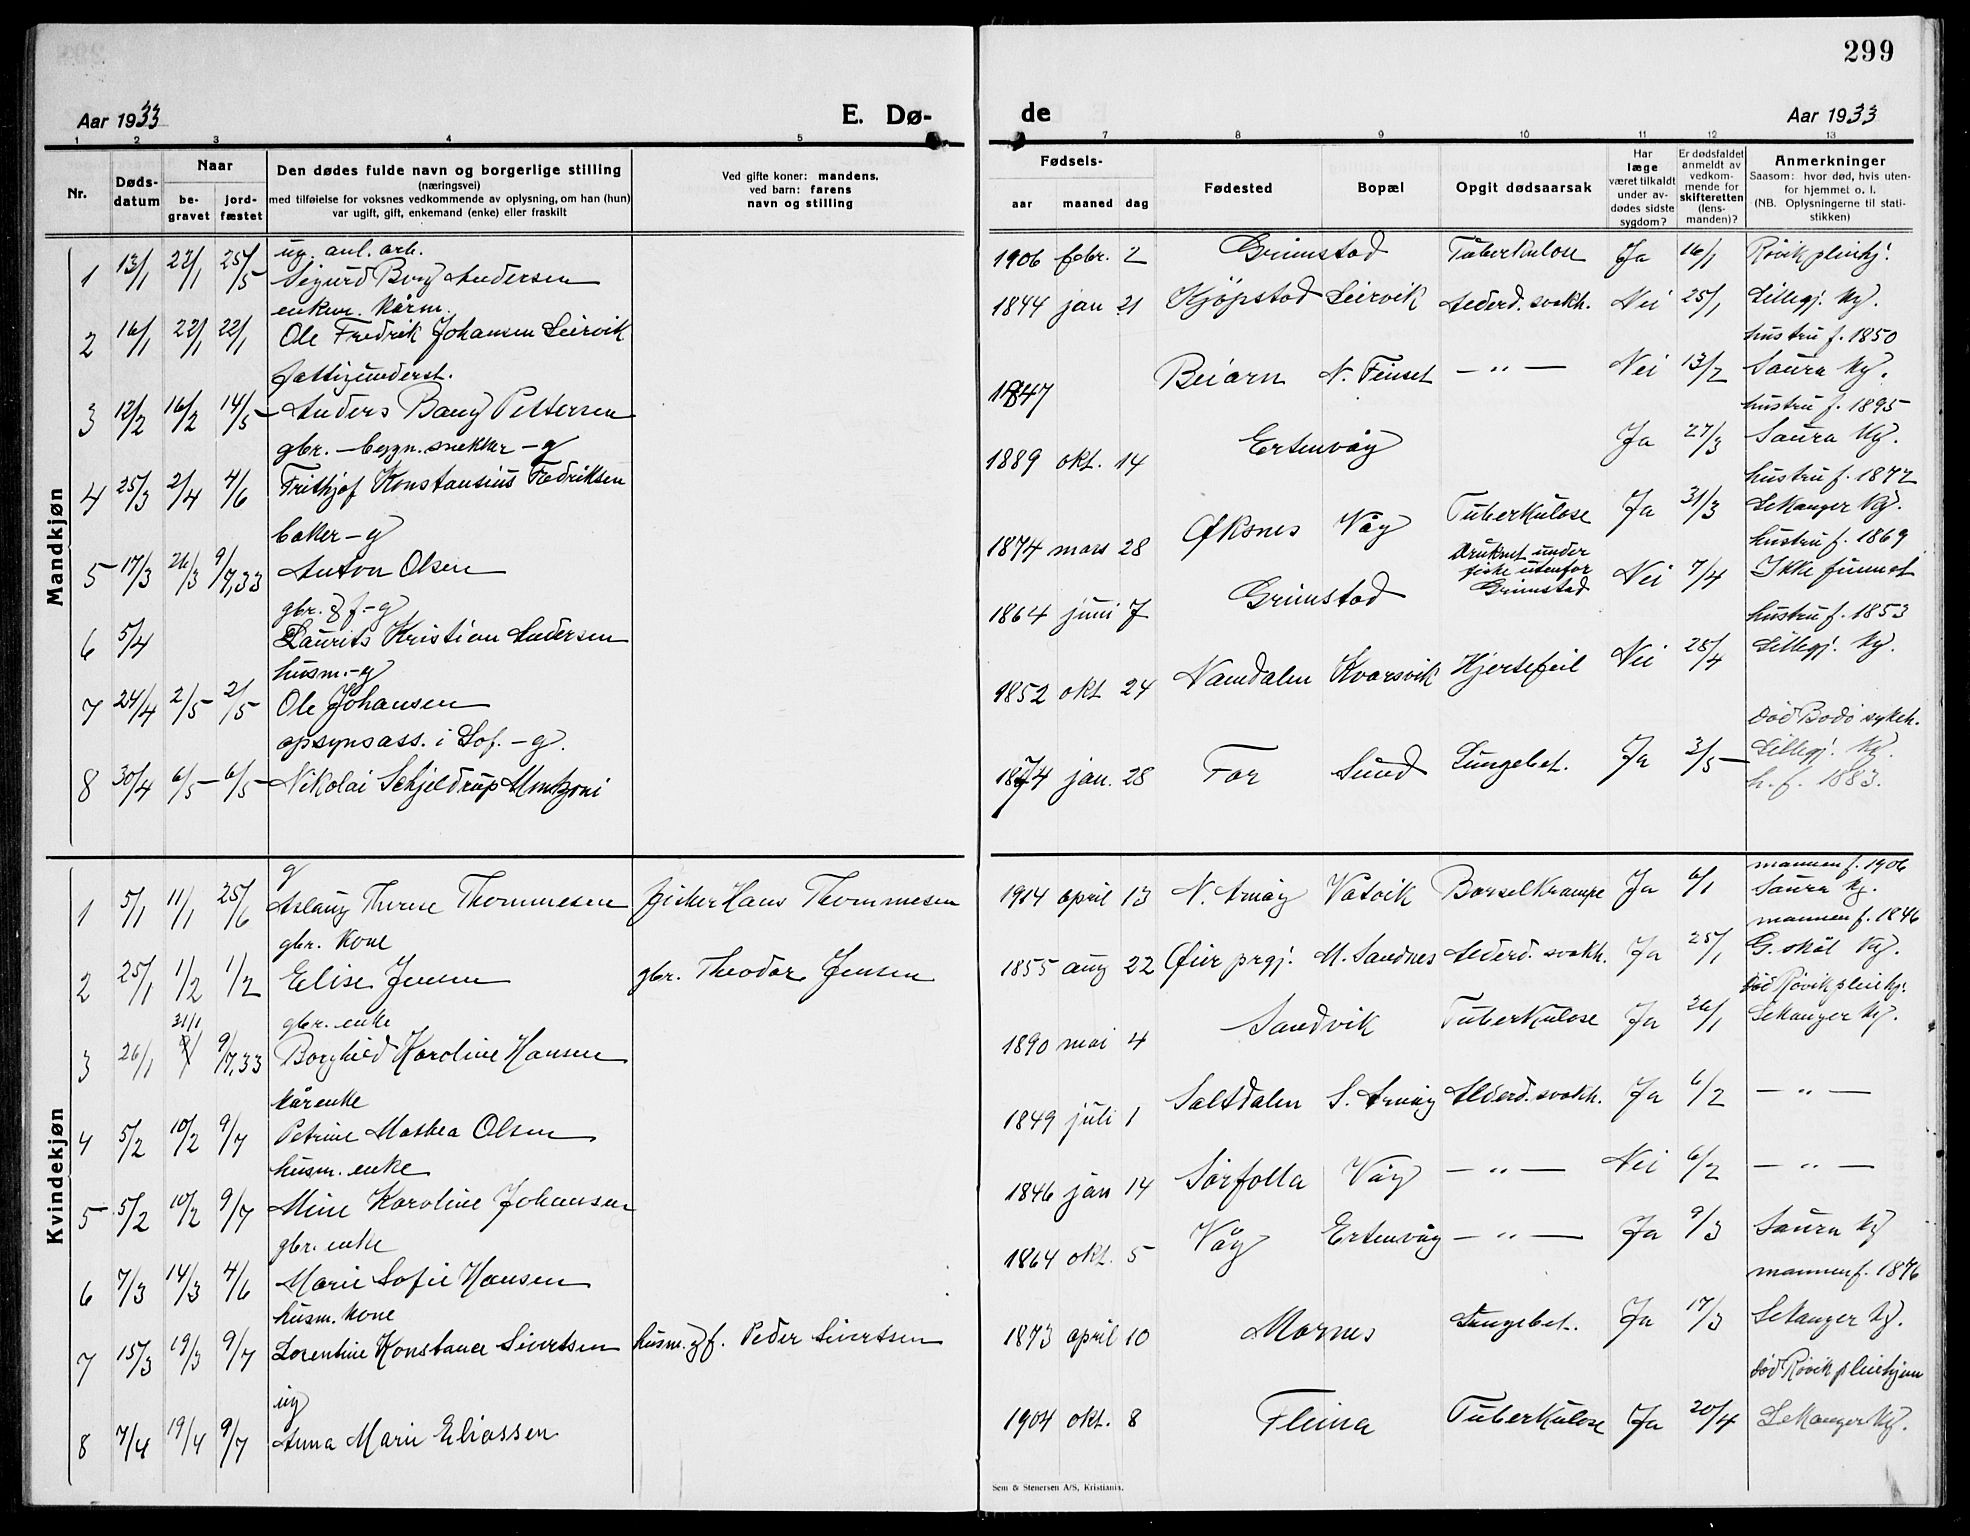 299
Aar 1933
E. Dø-
de
Aar 1933
1 2 3 4 5
7 8 9 10 11 12 13
Nr.
Døds-
datum
Naar
be-
gravet
jord-
fæstet
Den dødes fulde navn og borgerlige stilling
(næringsvei)
med tilføielse for voksnes vedkommende av oplysning, om han (hun)
var ugift, gift, enkemand (enke) eller fraskilt
Ved gifte koner: mandens,
ved barn: farens
navn og stilling
Fødsels-
aar maaned dag
Fødested
Bopæl
Opgit dødsaarsak
Har
læge
været tilkaldt
under av-
dødes sidste
sygdom?
Er dødsfaldet
anmeldt av
vedkom-
mende for
skifteretten
(lens-
manden)?
Anmerkninger
Saasom: hvor død, hvis uten-
for hjemmet o. l.
(NB. Oplysningerne til stati-
stikken)
Mandkjøn
ug. anl. arb.
1 13/1 22/1 25/5 Sigurd Borg Andersen 1906 febr. 2 Grimstad Tuberkulose Ja 16/1 Røvik pleiehj.
enkem. kårm.
2 16/1 22/1 22/1 Ole Fredrik Johansen Leirvik 1844 jan 21 Kjöpstad Leirvik Alderd. svakh. Nei 25/1 Lillegj. kg.
hustru f. 1850
fattigunderst.
3 12/2 16/2 14/5 Anders Bang Pettersen 1847 Beiarn N. Feinset — " — Nei 13/2 Saura kg.
hustru f. 1895
gbr. – bygn. snekker – g
4 25/3 2/4 4/6 Frithjof Konstansius Fredriksen 1889 okt. 14 Ertenvåg Ja 27/3 Saura kg.
hustru f. 1872
baker – g
5 17/3 26/3 9/7,33 Anton Olsen 1874 mars 28 Øksnes Våg Tuberkulose Ja 31/3 Lekanger kg.
hustru f. 1869
gbr. & f – g
6 5/4 Laurits Kristian Andersen 1864 juni 7 Grimstad Druknet under
fiske utenfor
Grimstad Nei 7/4 Ikke funnet
hustru f. 1853
husm. – g
7 24/4 2/5 2/5 Ole Johansen 1852 okt 24 Namdalen Kvarsvik Hjertefeil Nei 28/4 Lillegj. kg.
død Bodø sykeh.
opsynsass. i Lof. – g.
8 30/4 6/5 6/5 Nikolai Schjeldrup Montzoni 1874 jan. 28 Far Sund Lungebet. Ja 3/5 Lillegj. kg.
h. f. 1883.
Kvindekjøn
g mannen f. 1906
1 5/1 11/1 25/6 Aslaug Therese Thommesen fisker Hans Thommesen 1914 april 13 N. Arnøy Vatvik Barselkrampe Ja 6/1 Saura kg.
mannen f. 1846
gbr. kone
2 25/1 1/2 1/2 Elise Jensen gbr. Theodor Jensen 1855 aug 22 Øier prgj. M. Sandnes Alderd. svakh. Ja 25/1 G. skål kg.
død Røvik pleiehj.
31/1 gbr. enke
3 26/1 9/7,33 Borghild Karoline Hansen 1890 mai 4 Sandvik Tuberkulose Ja 26/1 Lekanger kg.
kårenke
4 5/2 10/2 9/7 Petrine Mathea Olsen 1849 juli 1 Saltdalen S. Arnøy Alderd. svakh. Ja 6/2 — " —
husm. enke
5 5/2 10/2 9/7 Mine Karoline Johansen 1846 jan 14 Sørfolla Våg — " — Nei 6/2 — " —
gbr. enke
6 7/3 14/3 4/6 Marie Sofie Hansen 1864 okt. 5 Våg Ertenvåg — " — Ja 9/3 Saura kg
mannen f. 1876
husm. kone
7 15/3 19/3 9/7 Lorentine Konstance Sivertsen husm. & f. Peder Sivertsen 1873 april 10 Mornes Lungebet. Ja 17/3 Lekanger kg.
død Røvik pleiehjem
ug
8 7/4 19/4 9/7 Anna Marie Eliassen 1904 okt. 8 Fleina Tuberkulose Ja 20/4 Lekanger kg.
Sem & Stenersen A/S, Kristiania.